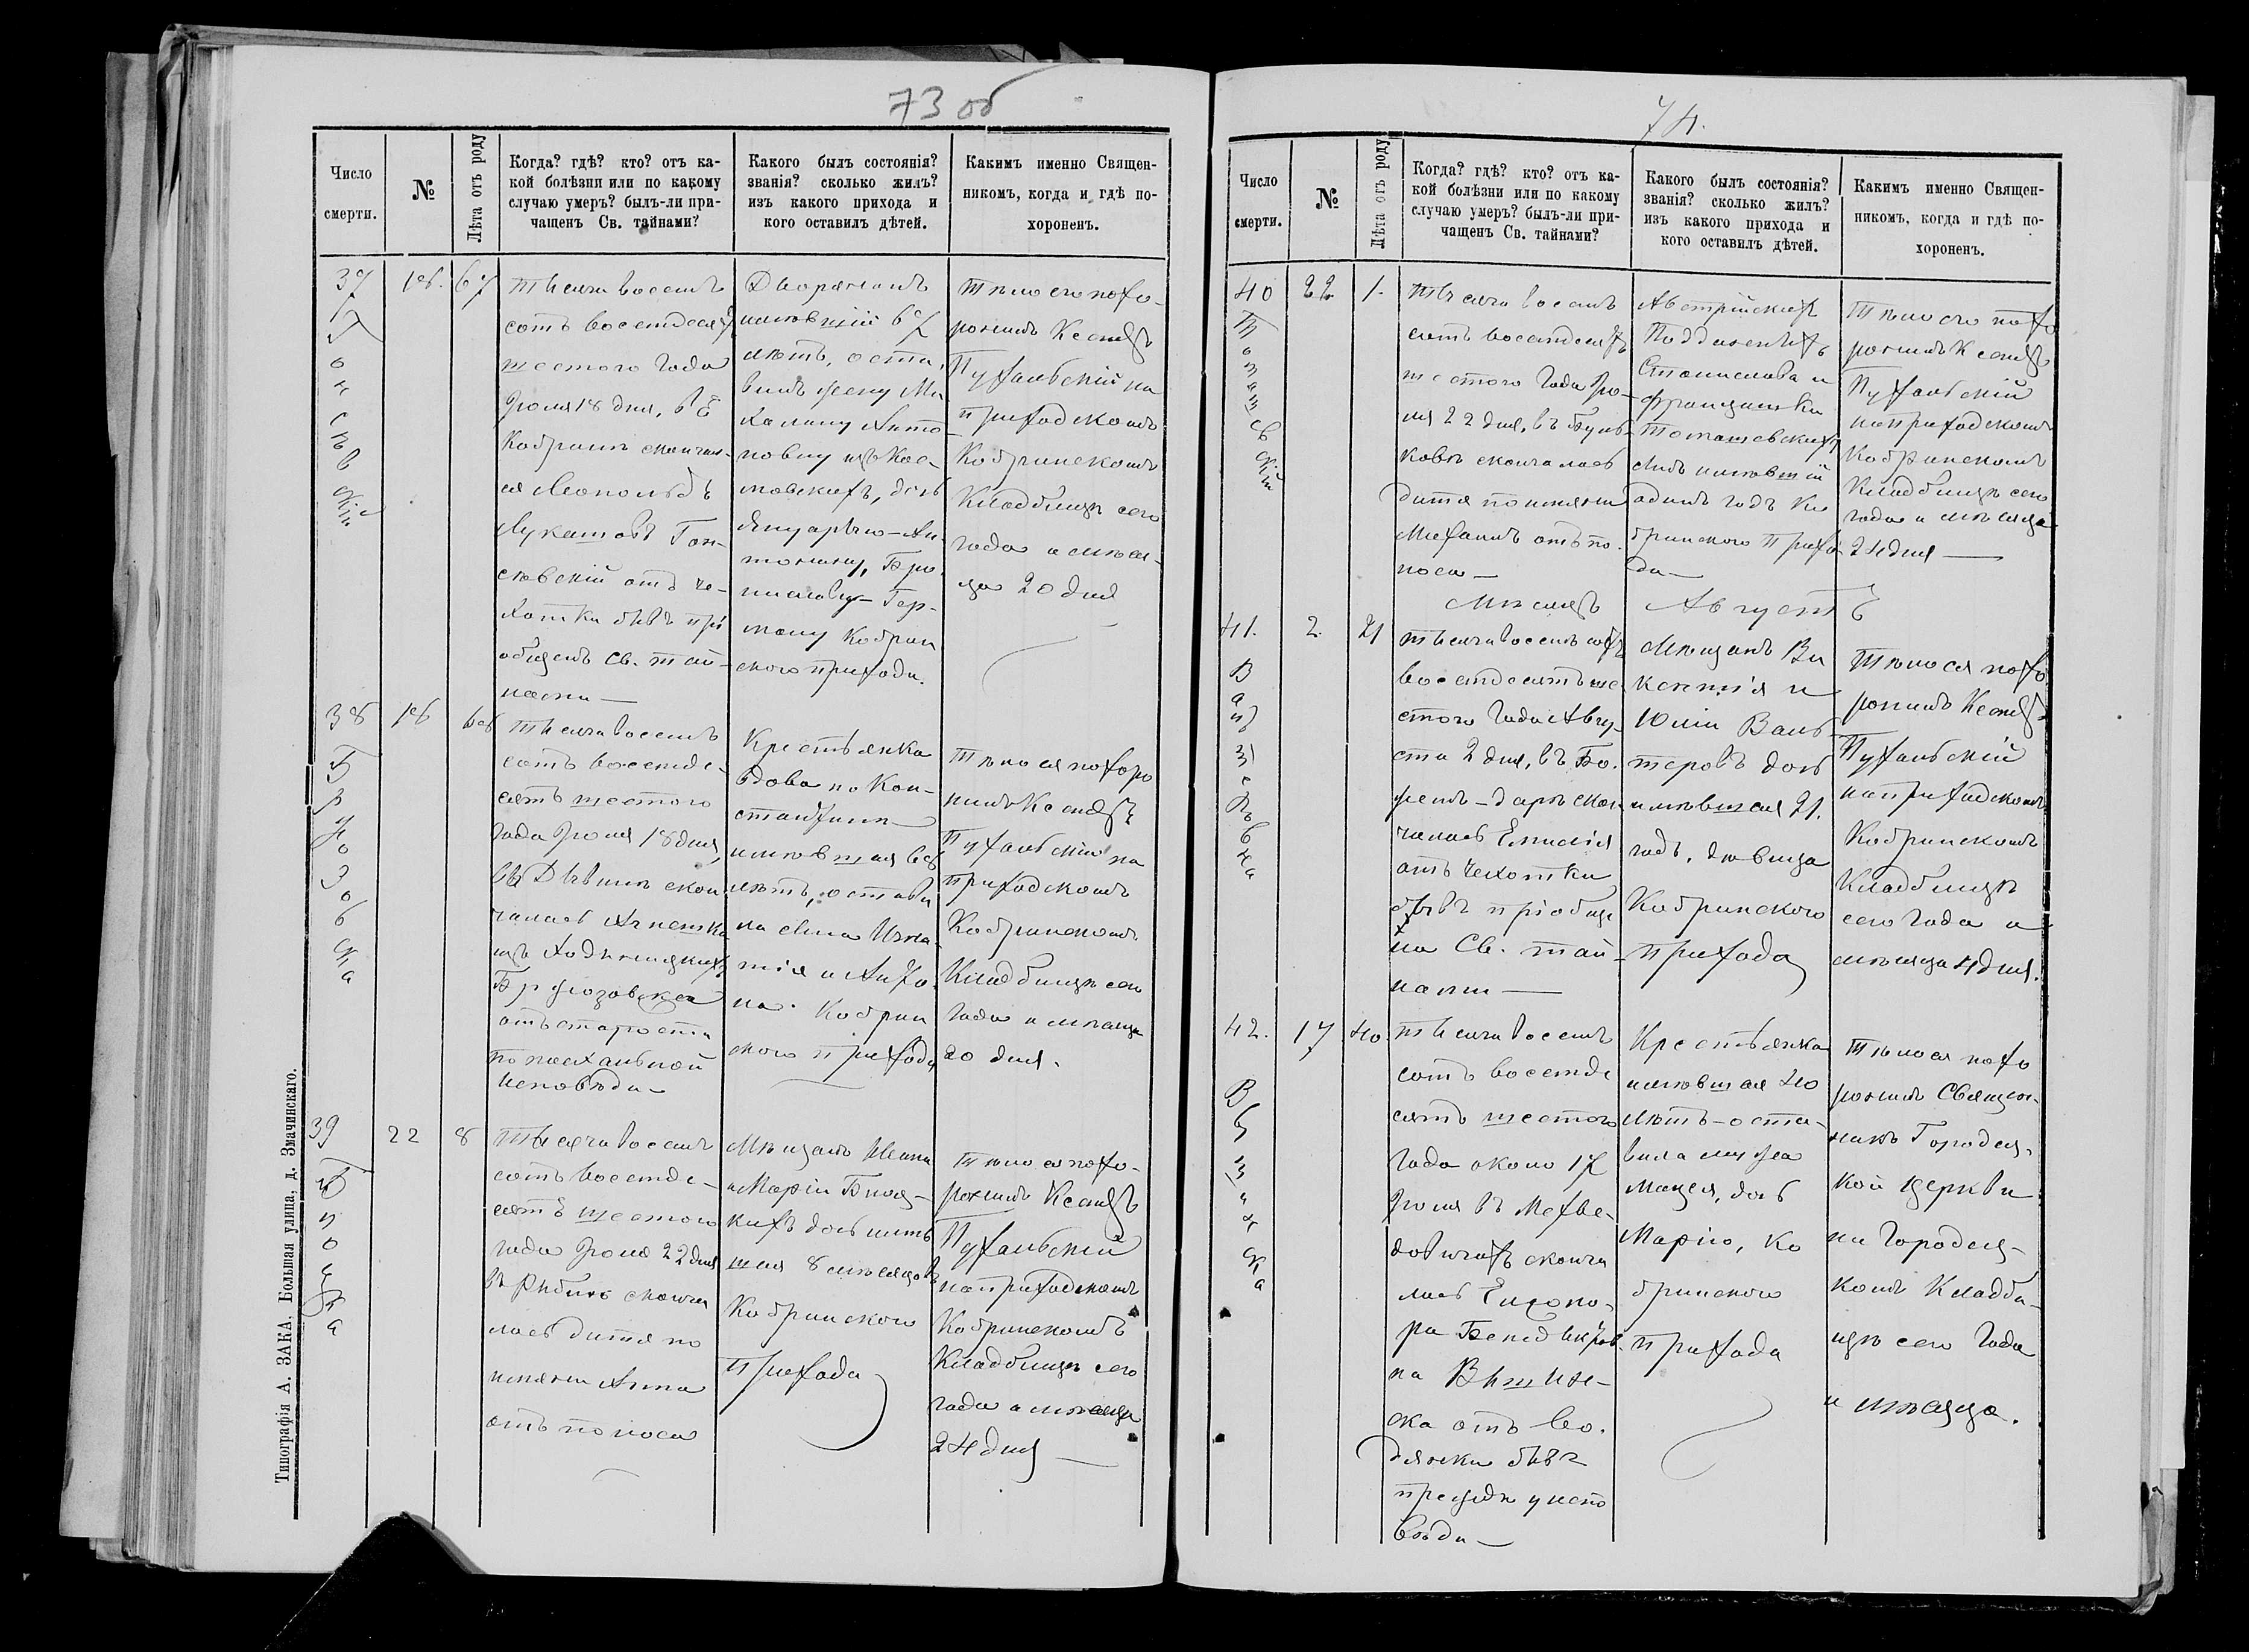 73 об
Число
смерти.
№
Лѣта отъ роду
Когда? гдѣ? кто? отъ ка-
кой болѣзни или по какому
случаю умеръ? былъ-ли при-
чащенъ Св. тайнами?
Какого былъ состоянія?
званія? сколько жилъ?
изъ какого прихода и
кого оставилъ дѣтей.
Какимъ именно Священ-
никомъ, когда и гдѣ по-
хороненъ.
37
18.
67
Тысяча восемь
сотъ восемдесятъ
шестого года
Іюля 18 дня, въ
Кобринѣ скончал-
ся Леопольдъ
Лукашовъ Гон-
сѣвскій отъ че-
хотки бывъ прі
общенъ Св. Тай-
нами —
Дворянинъ
имѣвшій 67
лѣтъ, оста-
вилъ жену Ми
халину Анто-
новну изъ Кос-
мовскихъ, дочь
Януарію-Ан-
тонину, Бро-
ниславу-Гер-
мону Кобрин
ского прихода.
Тѣло его похо-
ронилъ Ксендзъ
Пухальскій на
приходскомъ
Кобринскомъ
Кладбищѣ сего
года и мѣся-
ца 20 дня
38
18
68
Тысяча восемь
сотъ восемде-
сятъ шестого
года Іюля 18 дня,
въ Дывинѣ скон
чалась Агнешка
изъ Ходыницкихъ
Бржозовска
отъ старости
по пасхальной
Исповѣди —
Крестьянка
вдова по Кон-
стантинѣ
имѣвшая 68
лѣтъ, остави
ла сына Игна-
тія и Анто-
на. Кобрин
ского прихода
Тѣло ея похоро
нилъ Ксендзъ
Пухальскій на
приходскомъ
Кобринскомъ
Кладбищѣ сего
года и мѣсяца
20 дня.
39
22
8
Тысяча восемь
сотъ восемде-
сятъ шестого
года Іюля 22 дня
въ Рыбнѣ сконча
лась дитя по
имени Анна
отъ поноса
Мѣщанъ Ивана
и Маріи
кихъ дочь имѣв
шая 8 мѣсяцовъ
Кобринского
прихода
Тѣло ея похо-
ронилъ Ксендзъ
Пухальскій
на приходскомъ
Кобринскомъ
Кладбищѣ сего
года и мѣсяца
24 дня —
Типографія А. ЗАКА. Большая улица, д. Змачинскаго.
74.
Число
смерти.
№
Лѣта отъ роду
Когда? гдѣ? кто? отъ ка-
кой болѣзни или по какому
случаю умеръ? былъ-ли при-
чащенъ Св. тайнами?
Какого былъ состоянія?
званія? сколько жилъ?
изъ какого прихода и
кого оставилъ дѣтей.
Какимъ именно Священ-
никомъ, когда и гдѣ по-
хороненъ.
40
22
1.
Тысяча восемь
сотъ восемдесятъ
шестого года Ію-
ля 22 дня, въ Буль-
ковѣ скончалась
дитя по имени
Михаилъ отъ по-
носа —
Австрійскихъ
Подданныхъ
Станислава и
Францишки
Томашевскихъ
сынъ имѣвшій
одинъ годъ Ко
бринского Прихо
да —
Тѣло его похо
ронилъ Ксендзъ
Пухальскій
на приходскомъ
Кобринскомъ
Кладбищѣ сего
года и мѣсяца
24 дня —
Мѣсяцъ Августъ
41.
2.
21
Тысяча восемь сотъ
восемдесятъ ше
стого года Авгу-
ста 2 дня, въ Бо-
жемъ-дарѣ скон
чалась Емилія
отъ чехотки
бывъ пріобще
на Св. тай-
нами —
Мѣщанъ Ви
кентія и
Юліи Валь-
теровъ дочь
имѣвшая 21.
годъ, дѣвица
Кобринского
прихода
Тѣло ея похо
ронилъ Ксендзъ
Пухальскій
на приходскомъ
Кобринскомъ
Кладбищѣ
сего года и
мѣсяца 4 дня.
42.
17
40.
Тысяча восемь
сотъ восемде
сятъ шестого
года около 17
Іюля въ Мехве-
довичахъ сконча
лась Елеоно-
ра Бенедыктов-
на Вышин-
ска отъ во-
дянки бывъ
прежде у испо
вѣди —
Крестьянка
имѣвшая 40
лѣтъ — оста-
вила мужа
Мацея, дочь
Марію, Ко
бринского
прихода
Тѣло ея похо
ронилъ Священ-
никъ Городец-
кой церкви
на Городец-
комъ Кладби-
щѣ сего Года
и мѣсяца.